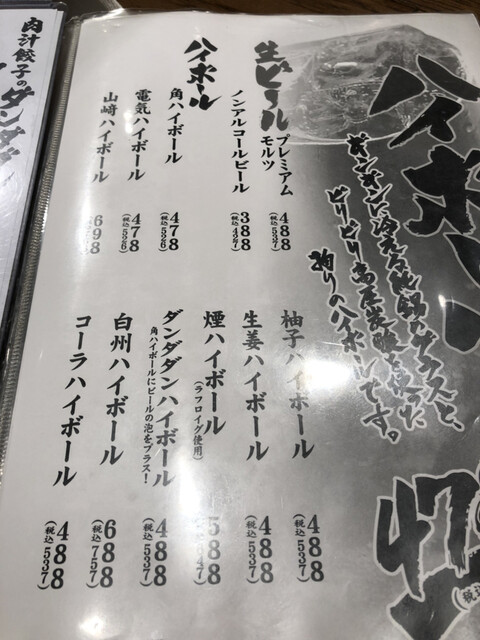 ハイボール
キンキンに冷える
グラスと、
ビリビリ高圧炭酸を使った
拘りのハイボールです。
478
生ビール
プレミアム
モルツ
488
(税込537)
ノンアルコールビール
388
(税込427)
ハイボール
角ハイボール
478
(税込526)
電気ハイボール
478
(税込526)
山崎ハイボール
698
柚子ハイボール
488
(税込537)
生姜ハイボール
488
(税込537)
煙ハイボール
(ラフロイグ使用)
588
(税込647)
ダンダダンハイボール
角ハイボールにビールの泡をプラス!
488
(税込537)
白州ハイボール
688
(税込757)
コーラハイボール
488
(税込537)
肉汁餃子の
ダンダダン